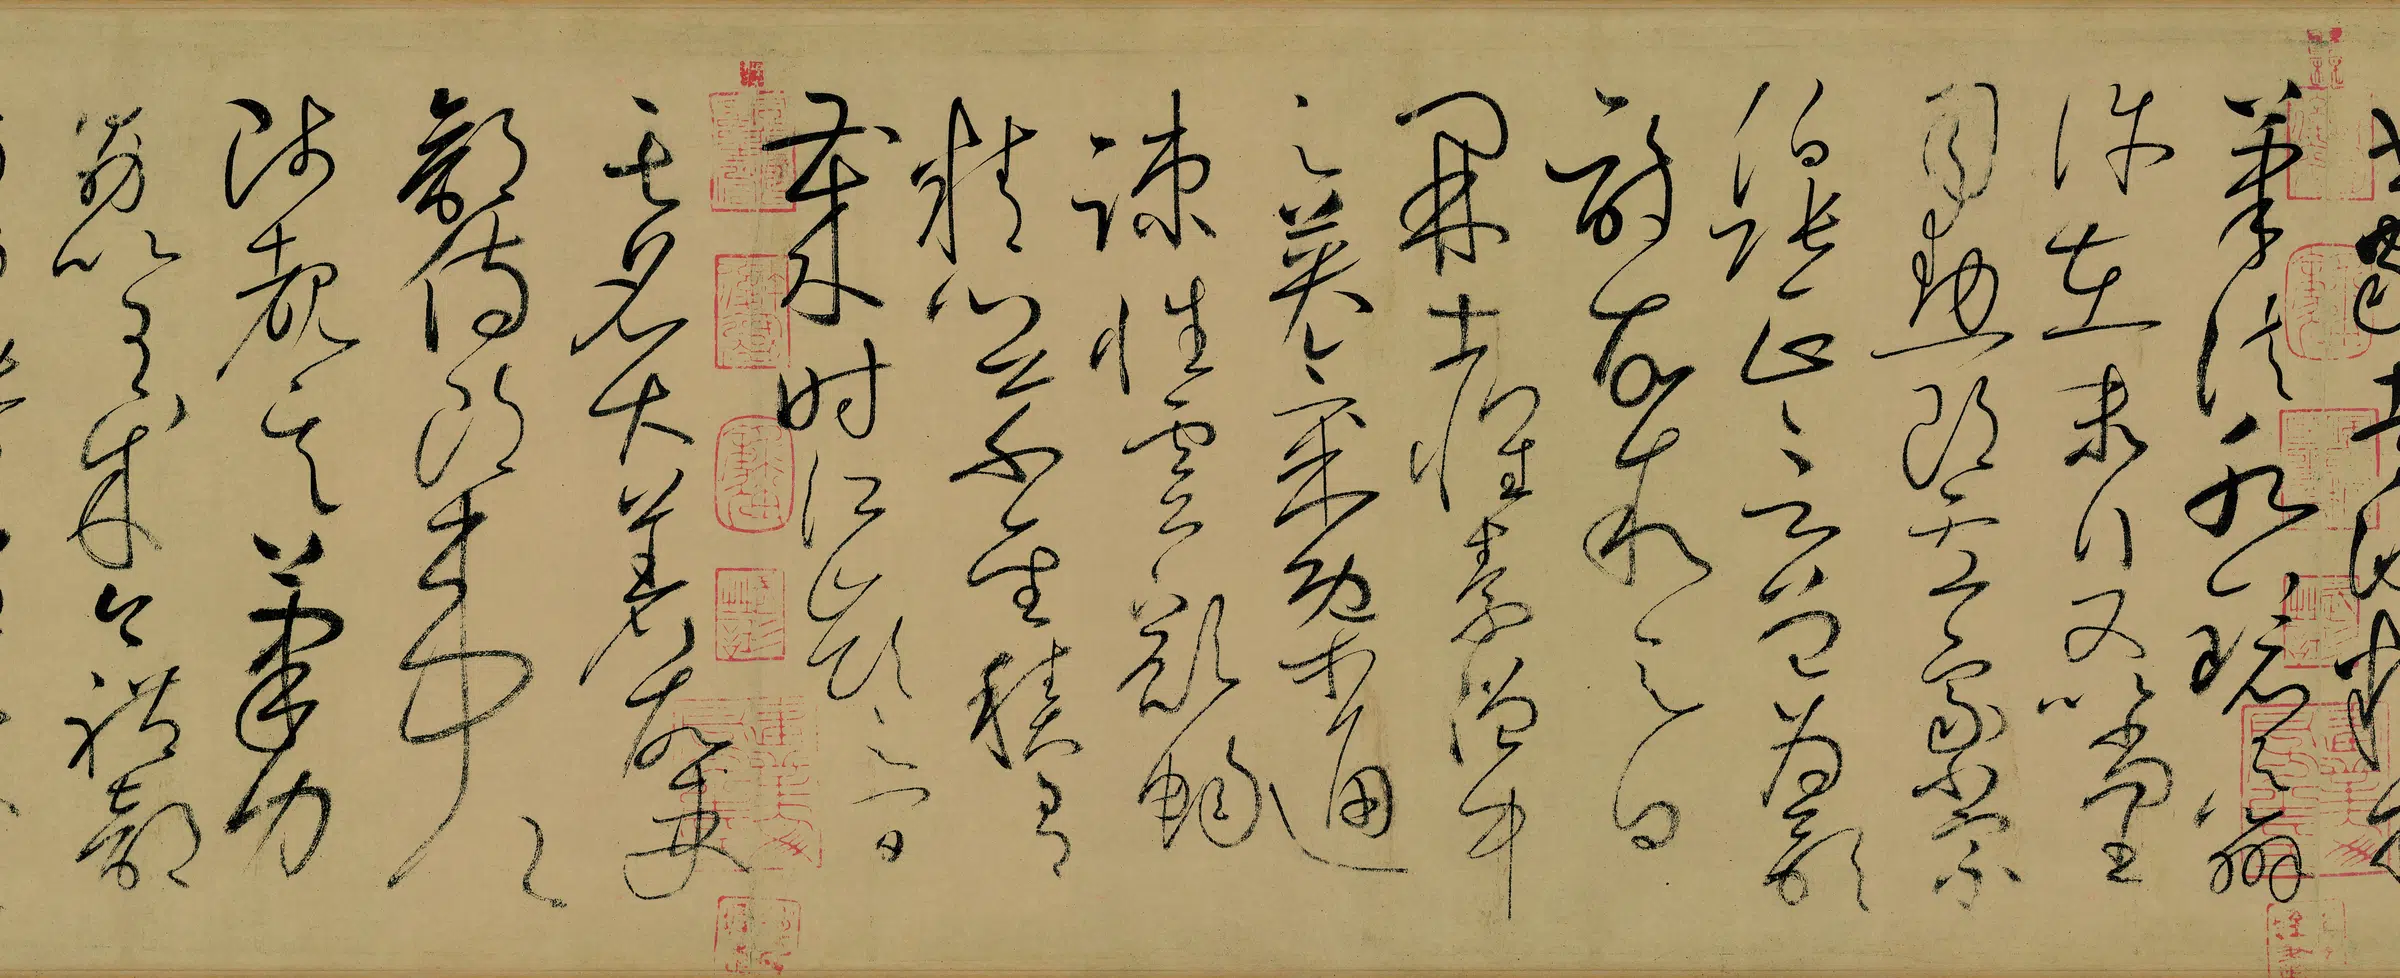 筆法水鏡之辨
許在末行又以尚書
司勛郎盧象小宗
伯張正言曾為歌
詩故敘之曰
開士懷素僧中
之英氣概通
疏性靈豁暢
精心草聖積有
歲時江嶺之間
其名大著故吏
部侍郎韋公
陟睹其筆力
勖以有成今禮部